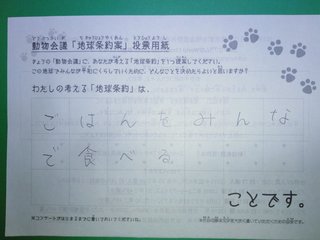 動物会議「地球条約案」投票用紙
きょうの「動物会議」に、あなたが考える「地球条約」を1つ提案してください。
この地球でみんなが平和にくらしていくために、どんなことを決めたらよいと思いますか？
わたしの考える「地球条約」は、
ごはんをみんな
で食べる
ことです。